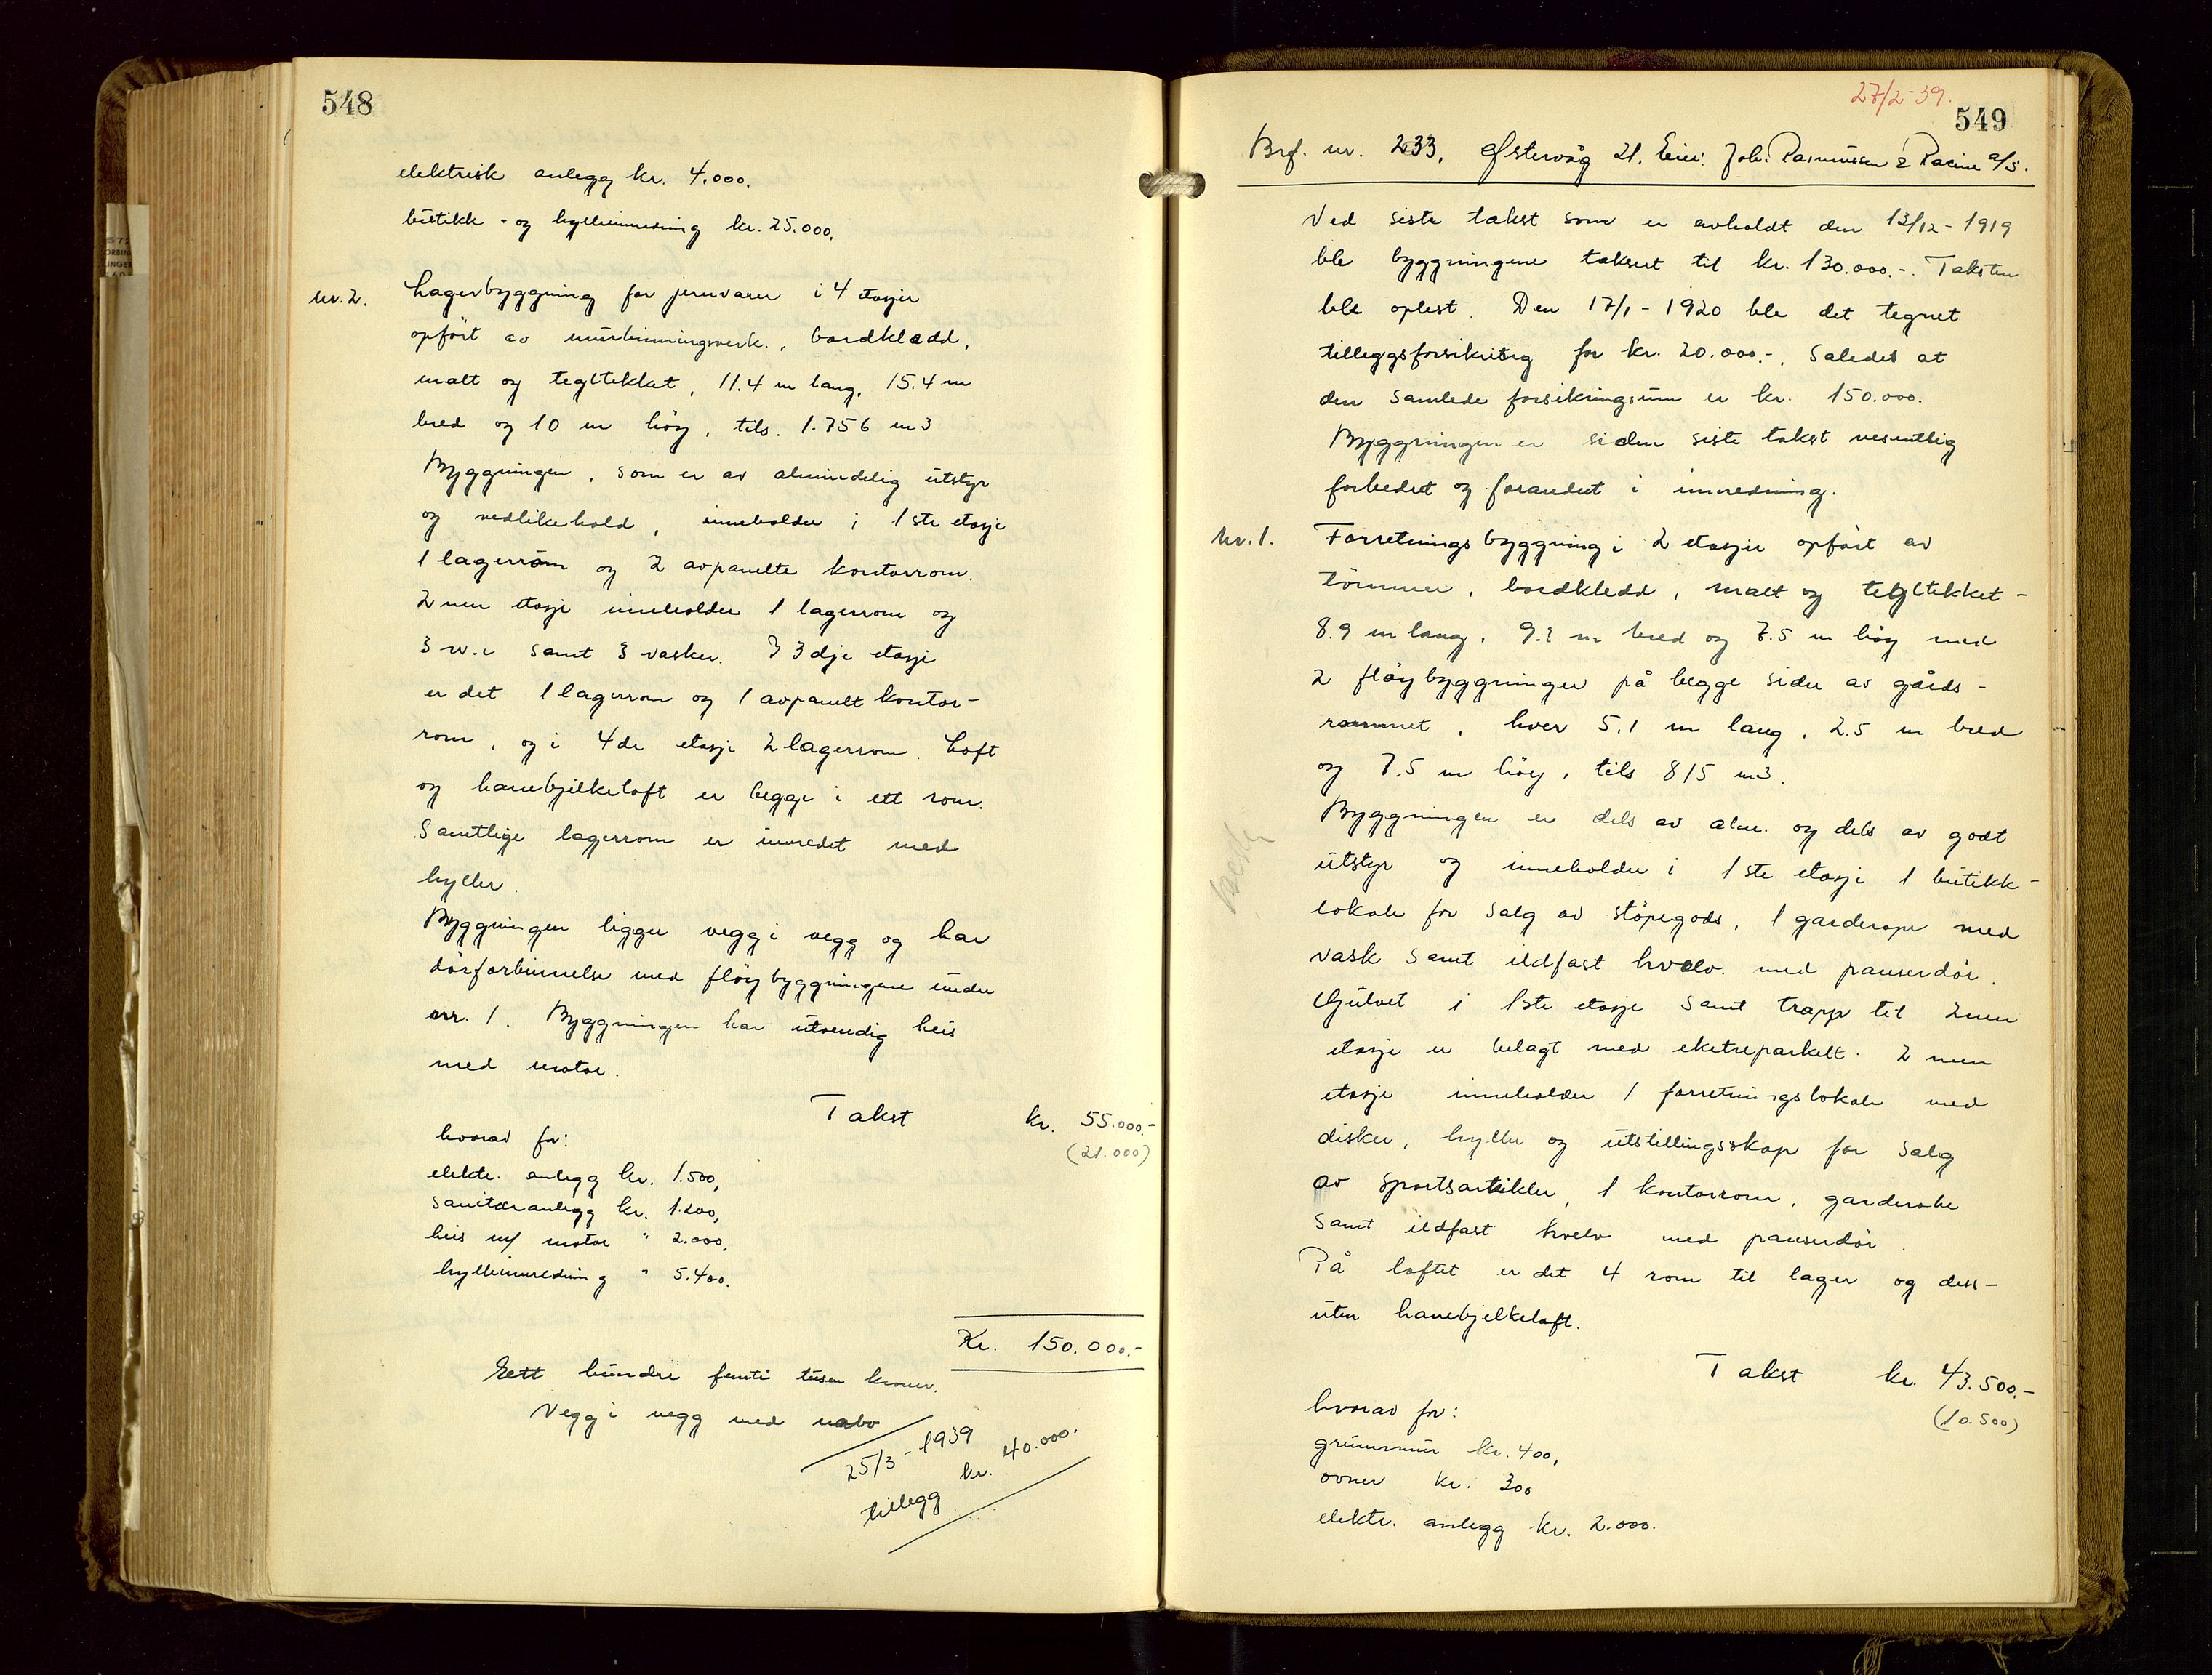 548
elektrisk anlegg kr. 4.000,
butikk- og hylleinnredning kr. 25.000.
nr. 2. Lagerbyggning for jernvarer i 4 etasjer
opført av murbinningsverk, bordkledd,
malt og tegltekket, 11.4 m lang, 15.4 m
bred og 10 m høy, tils. 1.756 m3
Byggningen, som er av almindelig utstyr
og vedlikehold, inneholder i 1ste etasje
1 lagerrom og 2 avpanelte kontorrom.
2nen etasje inneholder 1 lagerrom og
3 w.c samt 3 vasker. I 3dje etasje
er det 1 lagerrom og 1 avpanelt kontor-
rom, og i 4de etasje 2 lagerrom. Loft
og hanebjelkeloft er begge i ett rom.
Samtlige lagerrom er innredet med
hyller.
Byggningen ligger vegg i vegg og har
dørforbinnelse med fløybyggningene under
nr. 1. Byggningen har utvendig heis
med motor.
Takst kr. 55.000.-
(21.000)
hvorav for:
elektr. anlegg kr. 1.500,
sanitæranlegg kr. 1.200,
heis m/ motor " 2.000,
hylleinnredning " 5.400.
Kr. 150.000.-
Ett hundre femti tusen kroner.
Vegg i vegg med nabo
25/3-1939
tillegg kr. 40.000.
27/2-39.
549
Brf. nr. 233, Østervåg 21. Eier: Joh. Rasmussen & Racine a/s.
Ved siste takst som er avholdt den 13/12-1919
ble byggningene taksert til kr. 130.000.-. Taksten
ble oplest. Den 17/1-1920 ble det tegnet
tilleggsforsikring for kr. 20.000.-, således at
den samlede forsikringsum er kr. 150.000.
Byggningen er siden siste takst vesentlig
forbedret og forandret i innredning.
nr. 1. Forretningsbyggning i 2 etasjer opført av
tømmer, bordkledd, malt og tegltekket-
8.9 m lang, 9.3 m bred og 7.5 m høy med
2 fløybyggninger på begge sider av gårds-
rommet, hver 5.1 m lang, 2.5 m bred
og 7.5 m høy, tils 815 m3.
Byggningen er dels av alm. og dels av godt
utstyr og inneholder i 1ste etasje 1 butikk-
lokale for salg av støpegods, 1 garderope med
vask samt ildfast hvelv med panserdør.
Gulvet i 1ste etasje samt trapp til 2nen
etasje er belagt med eketreparkett. 2nen
etasje inneholder 1 forretningslokale med
disker, hyller og utstillingsskap for salg
av sportsartikler, 1 kontorrom, garderobe
samt ildfast hvelv med panserdør.
På loftet er det 4 rom til lager og dess-
uten hanebjelkeloft.
Takst kr. 43.500.-
(10.500)
hvorav for:
grunnmur kr. 400,
ovner kr. 300
elektr. anlegg kr. 2.000.